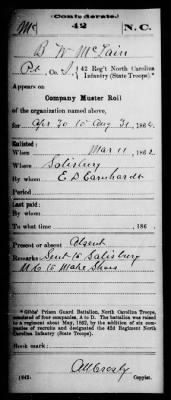 (Confederate.)
Mc 42 N.C.
B W McLain
Pvt, Co. I, 42 Reg't North Carolina
Infantry (State Troops).*
Appears on
Company Muster Roll
of the organization named above,
for Apr 30 to Aug 31, 1864.
Enlisted:
When Mar 11, 1862
Where Salisbury
By whom E D Earnhardt
Period
Last paid:
By whom
To what time , 186 .
Present or absent Absent
Remarks Sent to Salisbury
N.C. to make Shoes
*Gibbs' Prison Guard Battalion, North Carolina Troops,
consisted of four companies, A to D. The battalion was raised
to a regiment about May, 1862, by the addition of six companies
of recruits and designated the 42d Regiment North
Carolina Infantry.
Book mark:
(642)
Copyist.